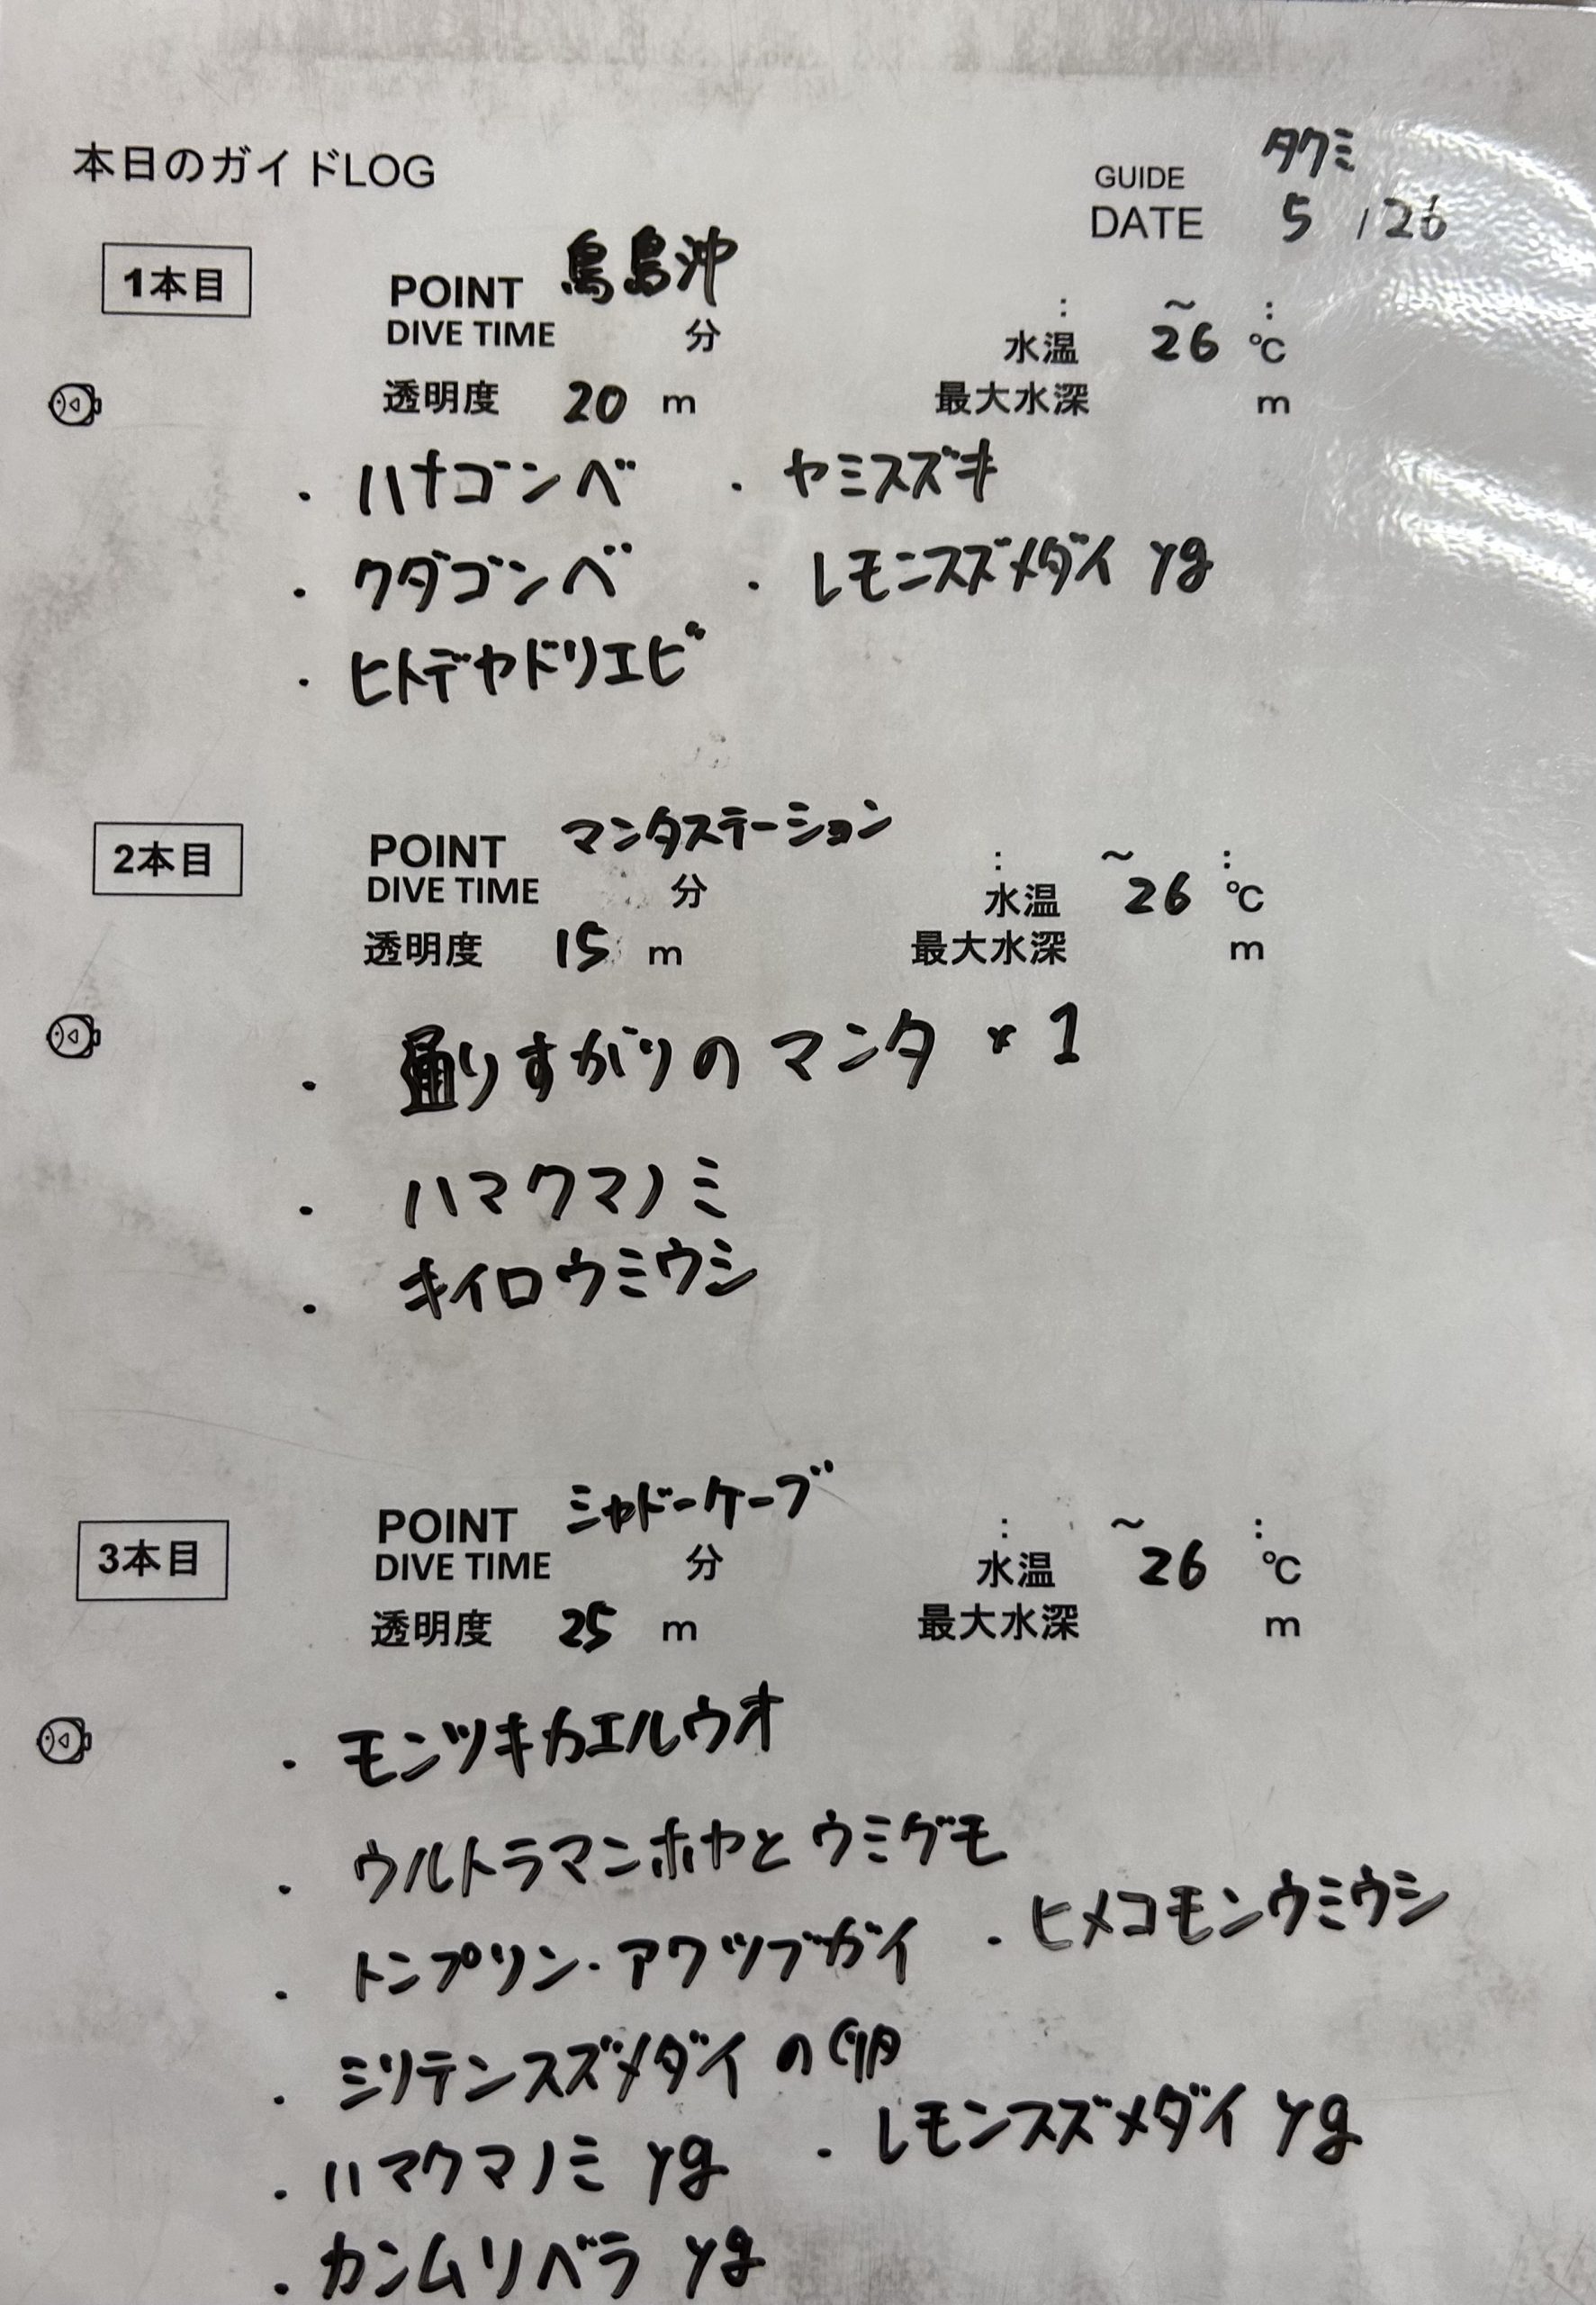 本日のガイドLOG
GUIDE タクミ
DATE 5 / 26
1本目 POINT 鳥島沖
DIVE TIME 分 : ～ :
水温 26 ℃
透明度 20 m 最大水深 m
・ハナゴンベ ・ヤミスズキ
・クダゴンベ ・レモンスズメダイ yg
・ヒトデヤドリエビ
2本目 POINT マンタステーション
DIVE TIME 分 : ～ :
水温 26 ℃
透明度 15 m 最大水深 m
・通りすがりのマンタ × 1
・ハマクマノミ
・キイロウミウシ
3本目 POINT シャドーケーブ
DIVE TIME 分 : ～ :
水温 26 ℃
透明度 25 m 最大水深 m
・モンツキカエルウオ
・ウルトラマンホヤとウミグモ
・トンプソン・アワツブガイ ・ヒメコモンウミウシ
・ミツテンスズメダイの卵
・ハマクマノミ yg ・レモンスズメダイ yg
・カンムリベラ yg